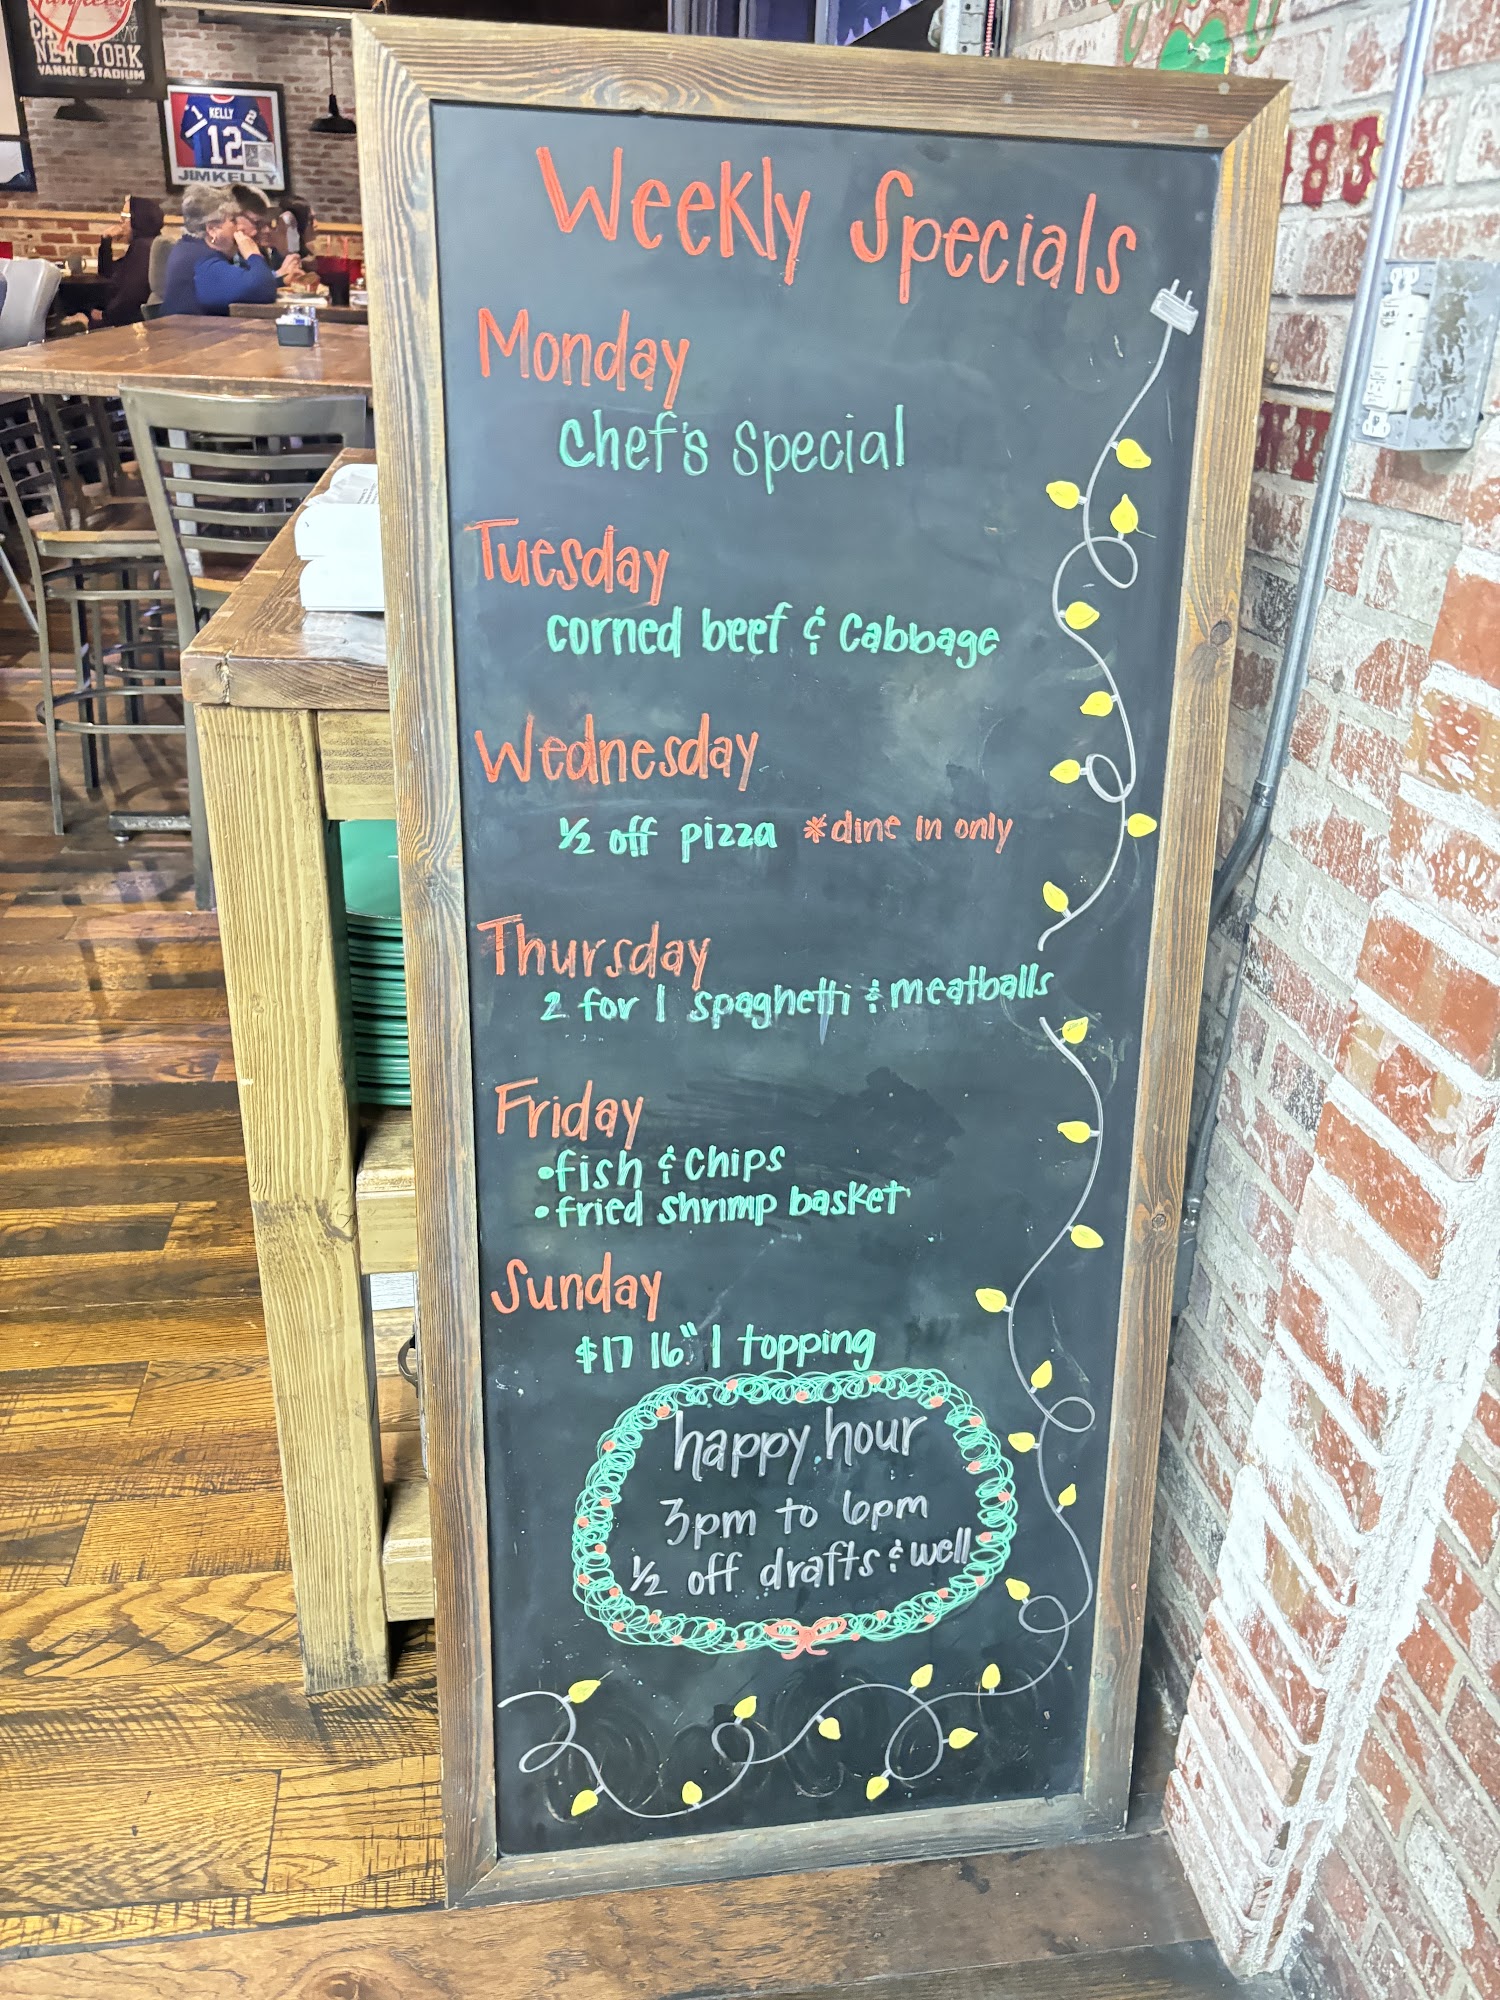 Yankees
NEW YORK
YANKEE STADIUM
KELLY
12
JIM KELLY
83
Weekly Specials
Monday
chef's special
Tuesday
corned beef & cabbage
Wednesday
1/2 off pizza *dine in only
Thursday
2 for 1 spaghetti & meatballs
Friday
•fish & chips
•fried shrimp basket
Sunday
$17 16" 1 topping
happy hour
3pm to 6pm
1/2 off drafts & well